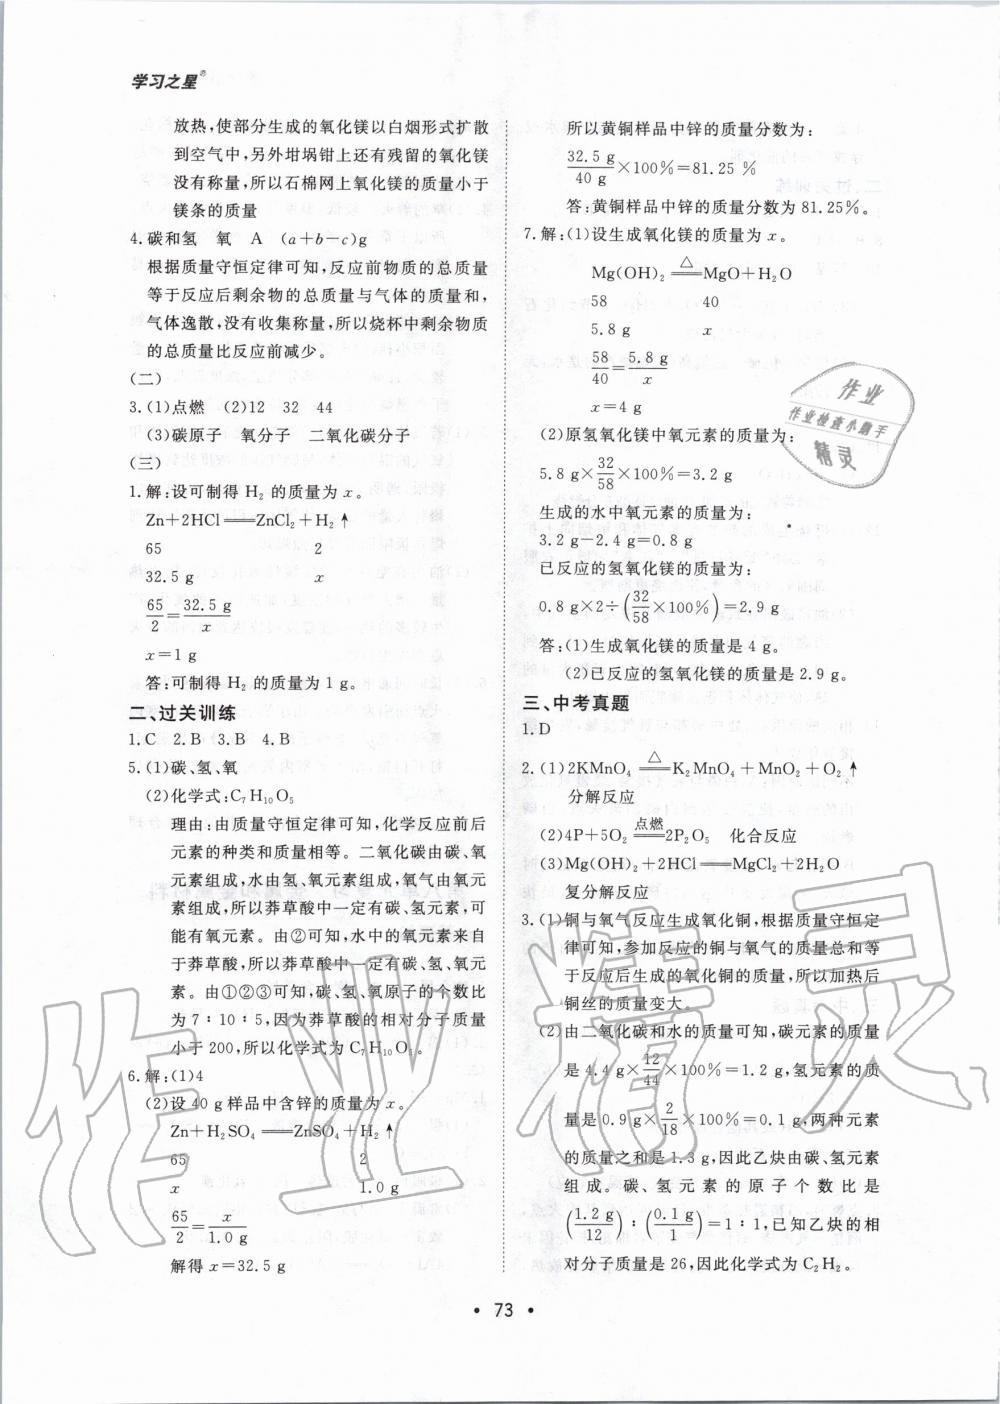 学习之星®
放热,使部分生成的氧化镁以白烟形式扩散
到空气中,另外坩埚钳上还有残留的氧化镁
没有称量,所以石棉网上氧化镁的质量小于
镁条的质量
4.碳和氢 氧 A (a+b-c)g
根据质量守恒定律可知,反应前物质的总质量
等于反应后剩余物的总质量与气体的质量和,
气体逸散,没有收集称量,所以烧杯中剩余物质
的总质量比反应前减少。
(二)
3.(1)点燃 (2)12 32 44
(3)碳原子 氧分子 二氧化碳分子
(三)
1.解:设可制得 H₂ 的质量为 x。
Zn+2HCl══ZnCl₂+H₂↑
65 2
32.5 g x
65/2=32.5 g/x
x=1 g
答:可制得 H₂ 的质量为 1 g。
二、过关训练
1.C 2.B 3.B 4.B
5.(1)碳、氢、氧
(2)化学式:C₇H₁₀O₅
理由:由质量守恒定律可知,化学反应前后
元素的种类和质量相等。二氧化碳由碳、氧
元素组成,水由氢、氧元素组成,氧气由氧元
素组成,所以莽草酸中一定有碳、氢元素,可
能有氧元素。由②可知,水中的氧元素来自
于莽草酸,所以莽草酸中一定有碳、氢、氧元
素。由①②③可知,碳、氢、氧原子的个数比
为 7∶10∶5,因为莽草酸的相对分子质量
小于 200,所以化学式为 C₇H₁₀O₅。
6.解:(1)4
(2)设 40 g 样品中含锌的质量为 x。
Zn+H₂SO₄══ZnSO₄+H₂↑
65 2
x 1.0 g
65/2=x/1.0 g
解得 x=32.5 g
所以黄铜样品中锌的质量分数为:
32.5 g/40 g×100%=81.25 %
答:黄铜样品中锌的质量分数为 81.25%。
7.解:(1)设生成氧化镁的质量为 x。
Mg(OH)₂ ══△══ MgO+H₂O
58 40
5.8 g x
58/40=5.8 g/x
x=4 g
(2)原氢氧化镁中氧元素的质量为:
5.8 g×32/58×100%=3.2 g
生成的水中氧元素的质量为:
3.2 g-2.4 g=0.8 g
已反应的氢氧化镁的质量为:
0.8 g×2÷(32/58×100%)=2.9 g
答:(1)生成氧化镁的质量是 4 g。
(2)已反应的氢氧化镁的质量是 2.9 g。
三、中考真题
1.D
2.(1)2KMnO₄ ══△══ K₂MnO₄+MnO₂+O₂↑
分解反应
(2)4P+5O₂ ══点燃══ 2P₂O₅ 化合反应
(3)Mg(OH)₂+2HCl══MgCl₂+2H₂O
复分解反应
3.(1)铜与氧气反应生成氧化铜,根据质量守恒定
律可知,参加反应的铜与氧气的质量总和等
于反应后生成的氧化铜的质量,所以加热后
铜丝的质量变大。
(2)由二氧化碳和水的质量可知,碳元素的质量
是 4.4 g×12/44×100%=1.2 g,氢元素的质
量是 0.9 g×2/18×100%=0.1 g,两种元素
的质量之和是 1.3 g,因此乙炔由碳、氢元素
组成。碳、氢元素的原子个数比是
(1.2 g/12)∶(0.1 g/1)=1∶1,已知乙炔的相
对分子质量是 26,因此化学式为 C₂H₂。
• 73 •
作业
作业检查小助手
精灵
作业精灵